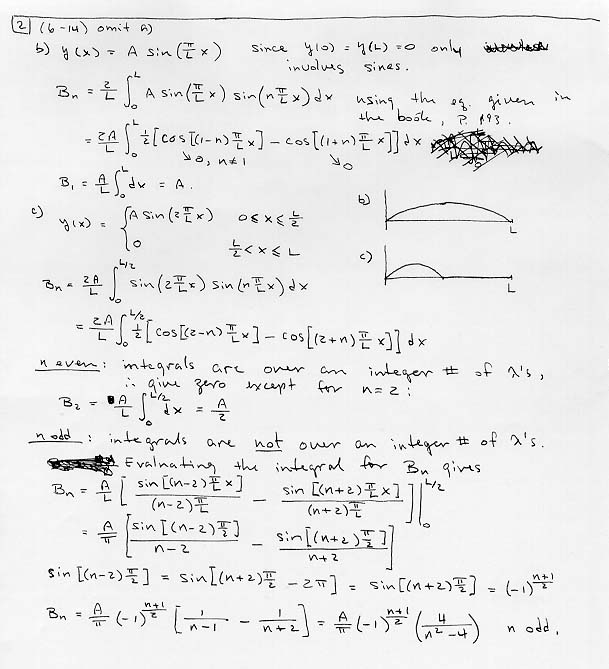 2 (6-14) omit a)
b) y(x) = A sin(π/L x) since y(0) = y(L) = 0 only
involves sines.
Bn = 2/L ∫₀ᴸ A sin(π/L x) sin(nπ/L x) dx using the eq. given in
the book, P. 193.
= 2A/L ∫₀ᴸ 1/2 [cos[(1-n)π/L x] - cos[(1+n)π/L x]] dx
↘0, n≠1 ↘0
B₁ = A/L ∫₀ᴸ dx = A.
b)
L
c) y(x) = { A sin(2π/L x) 0 ≤ x ≤ L/2
0 L/2 < x ≤ L
c)
L
Bn = 2A/L ∫₀^(L/2) sin(2π/L x) sin(nπ/L x) dx
= 2A/L ∫₀^(L/2) 1/2 [cos[(2-n)π/L x] - cos[(2+n)π/L x]] dx
n even: integrals are over an integer # of λ's,
∴ give zero except for n=2:
B₂ = A/L ∫₀^(L/2) dx = A/2
n odd: integrals are not over an integer # of λ's.
Evaluating the integral for Bn gives
Bn = A/L [ sin[(n-2)π/L x] / (n-2)π/L - sin[(n+2)π/L x] / (n+2)π/L ] |₀^(L/2)
= A/π [ sin[(n-2)π/2] / n-2 - sin[(n+2)π/2] / n+2 ]
sin[(n-2)π/2] = sin[(n+2)π/2 - 2π] = sin[(n+2)π/2] = (-1)^((n+1)/2)
Bn = A/π (-1)^((n+1)/2) [ 1/n-1 - 1/n+2 ] = A/π (-1)^((n+1)/2) (4/n²-4) n odd.